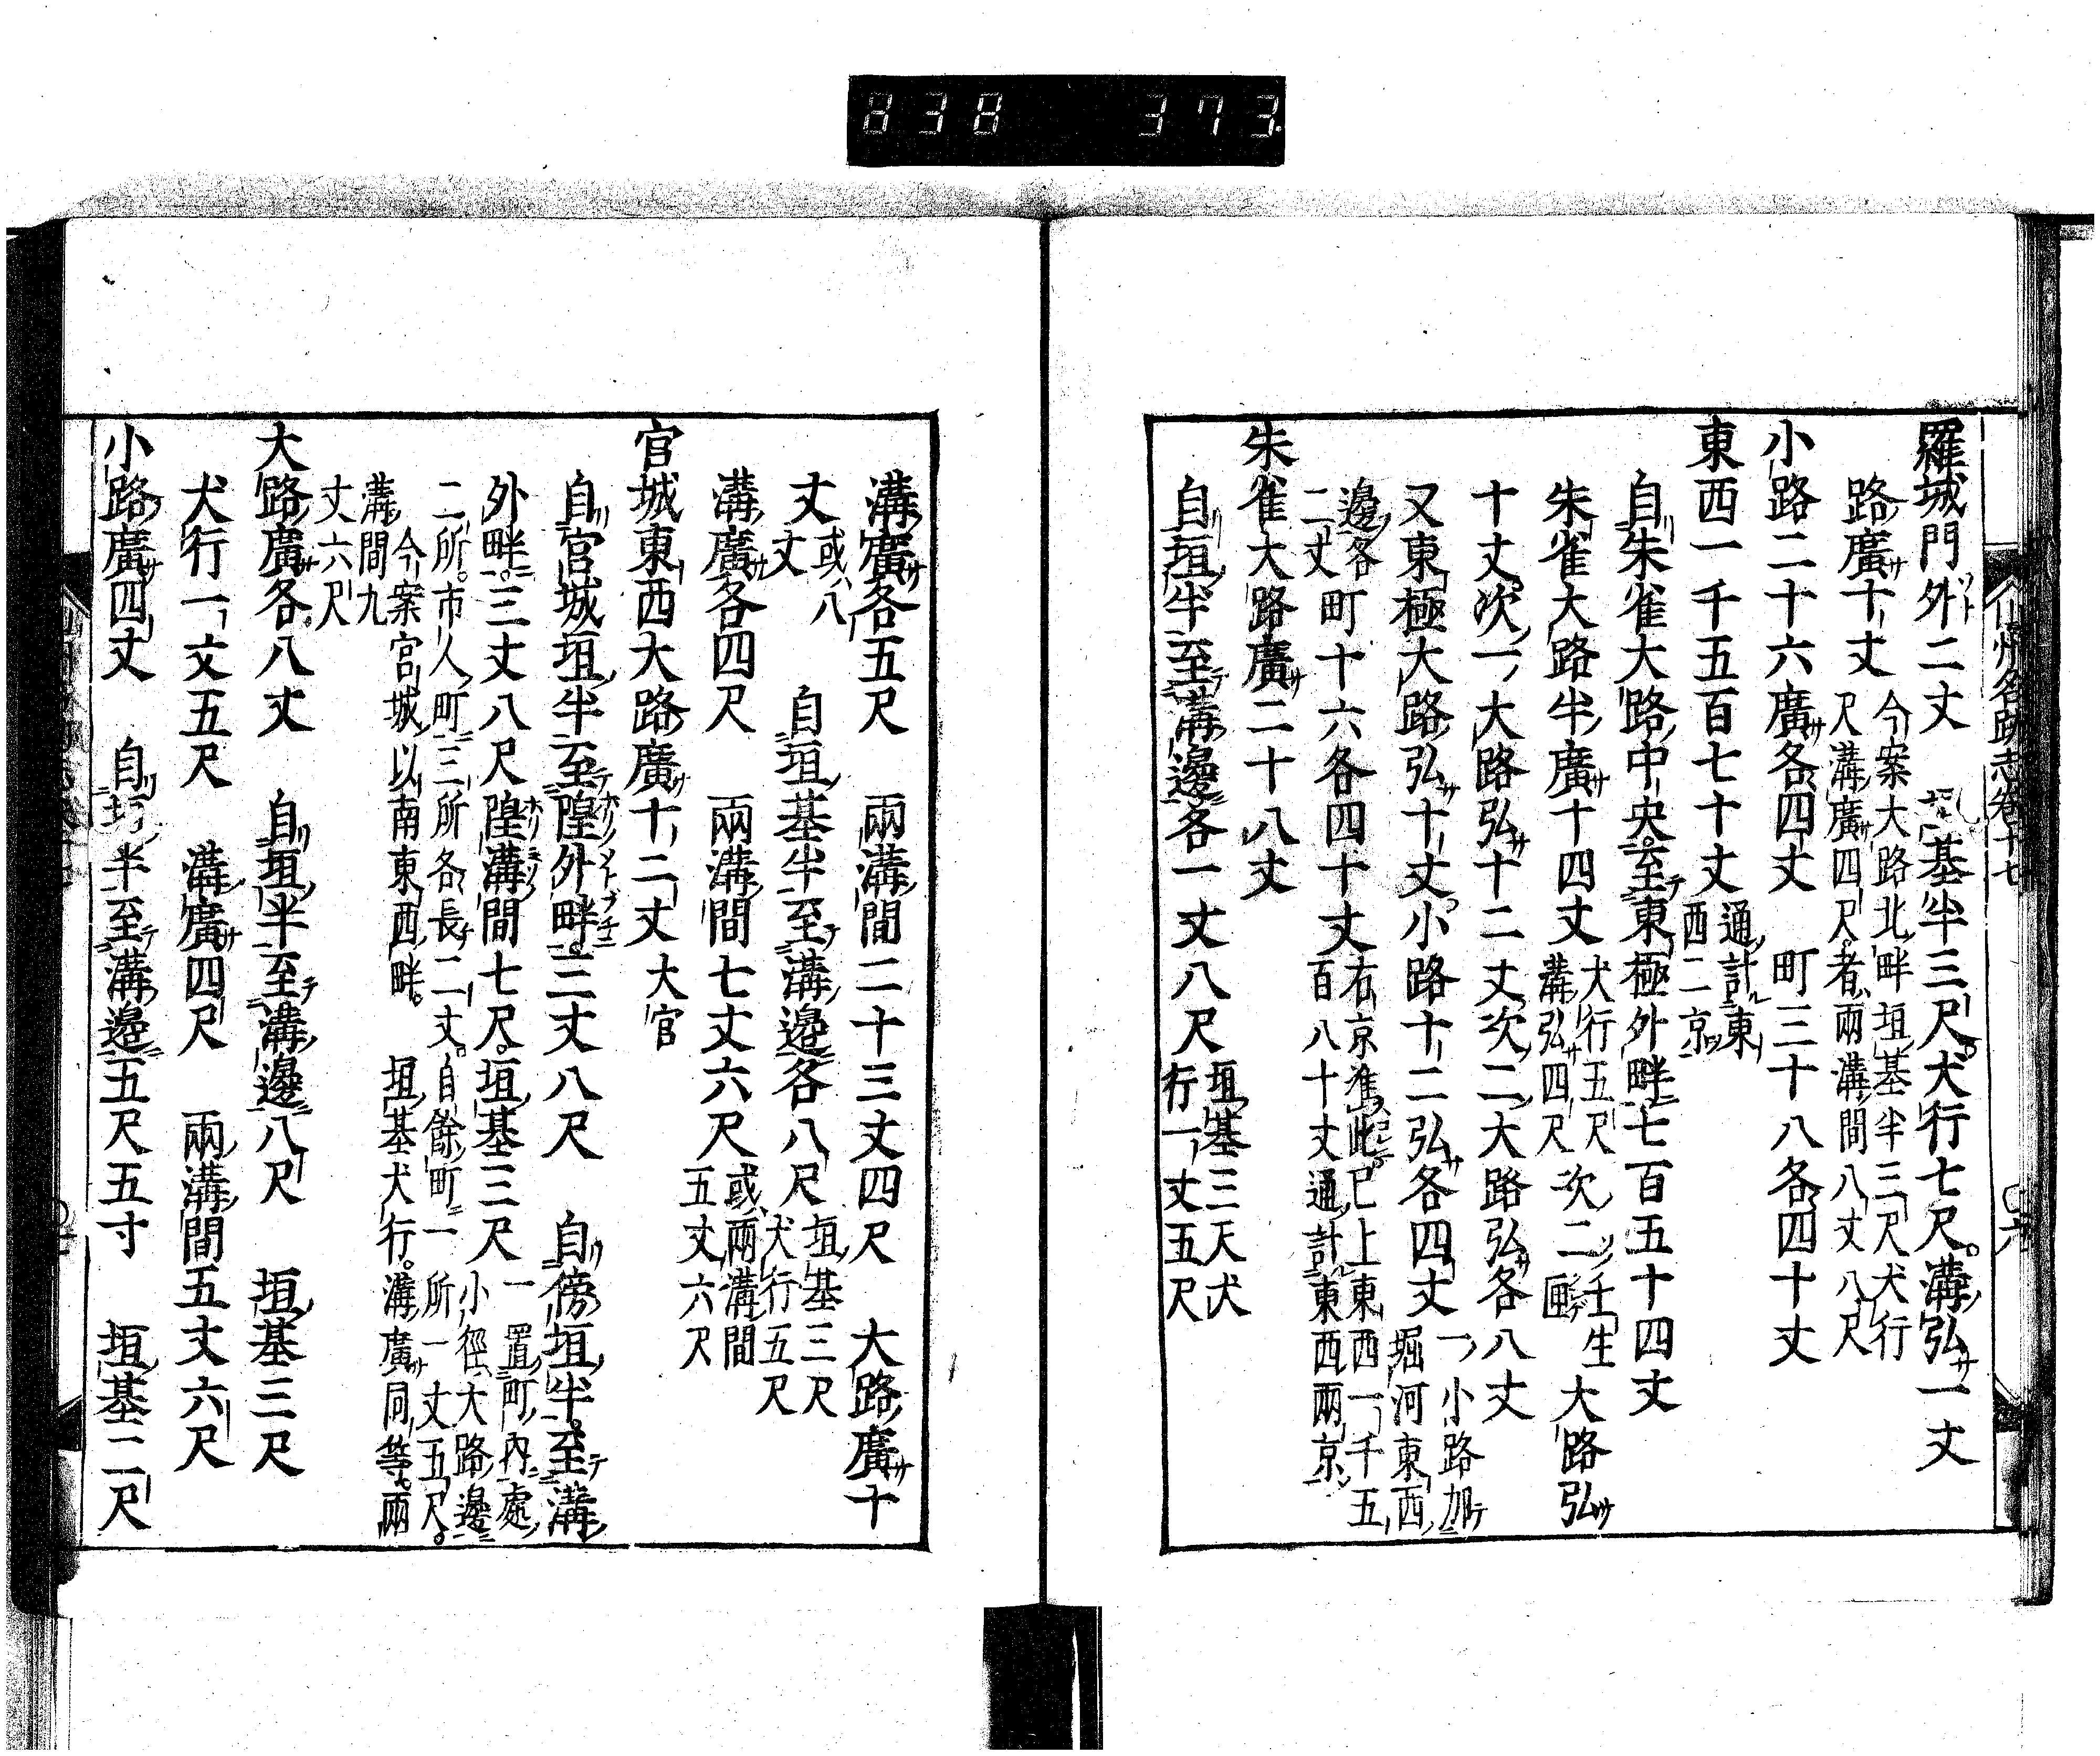 838 373
羅城門外二丈 垣基半三尺犬行七尺溝弘一丈
路廣十丈 今案大路北畔垣基半三尺犬行
尺溝廣四尺者兩溝間八丈八尺
小路二十六廣各四丈 町三十八各四十丈
東西一千五百七十丈 通計東
西二京
自朱雀大路中央至東極外畔七百五十四丈
朱雀大路半廣十四丈 犬行五尺
溝弘四尺 次二 壬生
匣 大路弘
十丈次一大路弘十二丈次二大路弘各八丈
又東極大路弘十丈小路十二弘各四丈 一小路加
堀河東西
邊各
二丈 町十六各四十丈 右京准此已上東西一千五
百八十丈通計東西兩京
朱雀大路廣二十八丈
自垣半至溝邊各一丈八尺 垣基三天犬
行一丈五尺
溝廣各五尺 兩溝間二十三丈四尺 大路廣十
丈 或八
丈 自垣基半至溝邊各八尺 垣基三尺
犬行五尺
溝廣各四尺 兩溝間七丈六尺 或兩溝間
五丈六尺
官城東西大路廣十二丈 大官
自官城垣半至隍外畔三丈八尺 自傍垣半至溝
外畔三丈八尺隍溝間七尺垣基三尺 一置町內處
小徑大路邊
二所市人町三所各長二丈自餘町一所一丈五尺
今案官城以南東西畔 垣基犬行溝廣同等兩
溝間九
丈六尺
大路廣各八丈 自垣半至溝邊八尺 垣基三尺
犬行一丈五尺 溝廣四尺 兩溝間五丈六尺
小路廣四丈 自 半至溝邊五尺五寸 垣基二尺